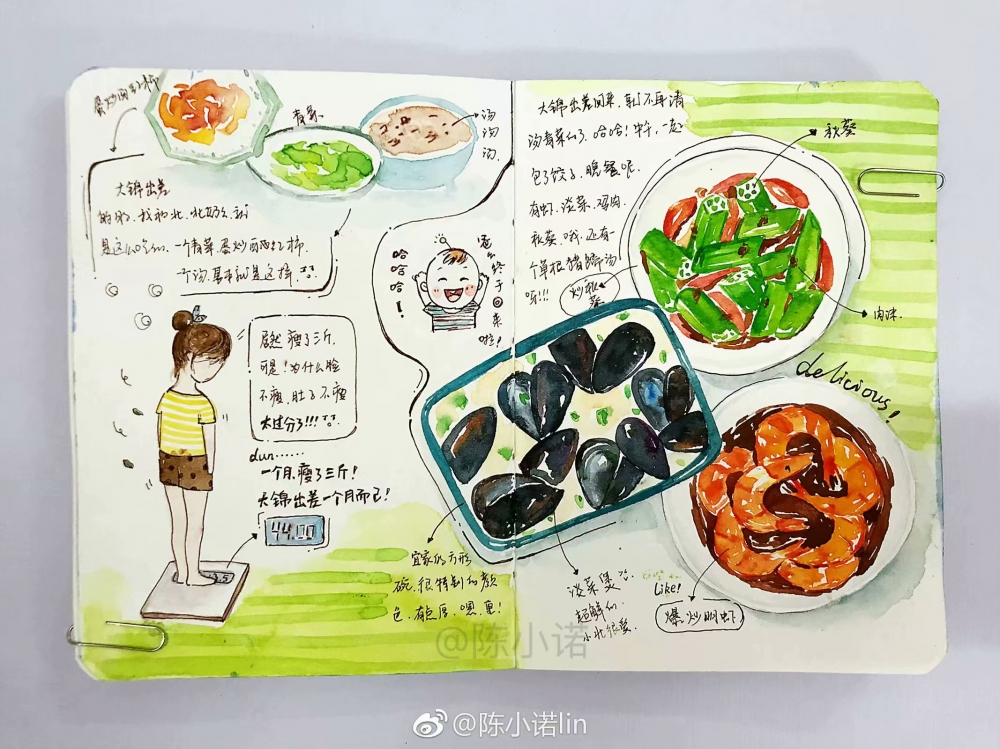 蛋炒西红柿
青菜
汤
汤
汤.
大锦出差
的时候.我和北北奶奶.就
是这么吃的.一个青菜.蛋炒西红柿.
一个汤.基本就是这样.
居然 瘦了三斤.
可是!为什么脸
不瘦.肚子不瘦
太过分了!!!
dun……
一个月.瘦了三斤!
大锦出差一个月而已!
44.00
哈哈哈!
终于回来啦!
宜家的方形
碗.很特别的颜
色.有点厚.嗯.重!
大锦出差回来.就不再清
汤青菜们了.哈哈!中午.一起
包了饺子.晚餐呢.
有虾.淡菜.鸡肉.
秋葵.哦.还有一
个单根猪蹄汤
呀!!!
炒秋葵
秋葵
肉沫.
delicious!
淡菜煲
超鲜的.
小北很爱.
Like!
爆炒明虾
@陈小诺
@陈小诺lin